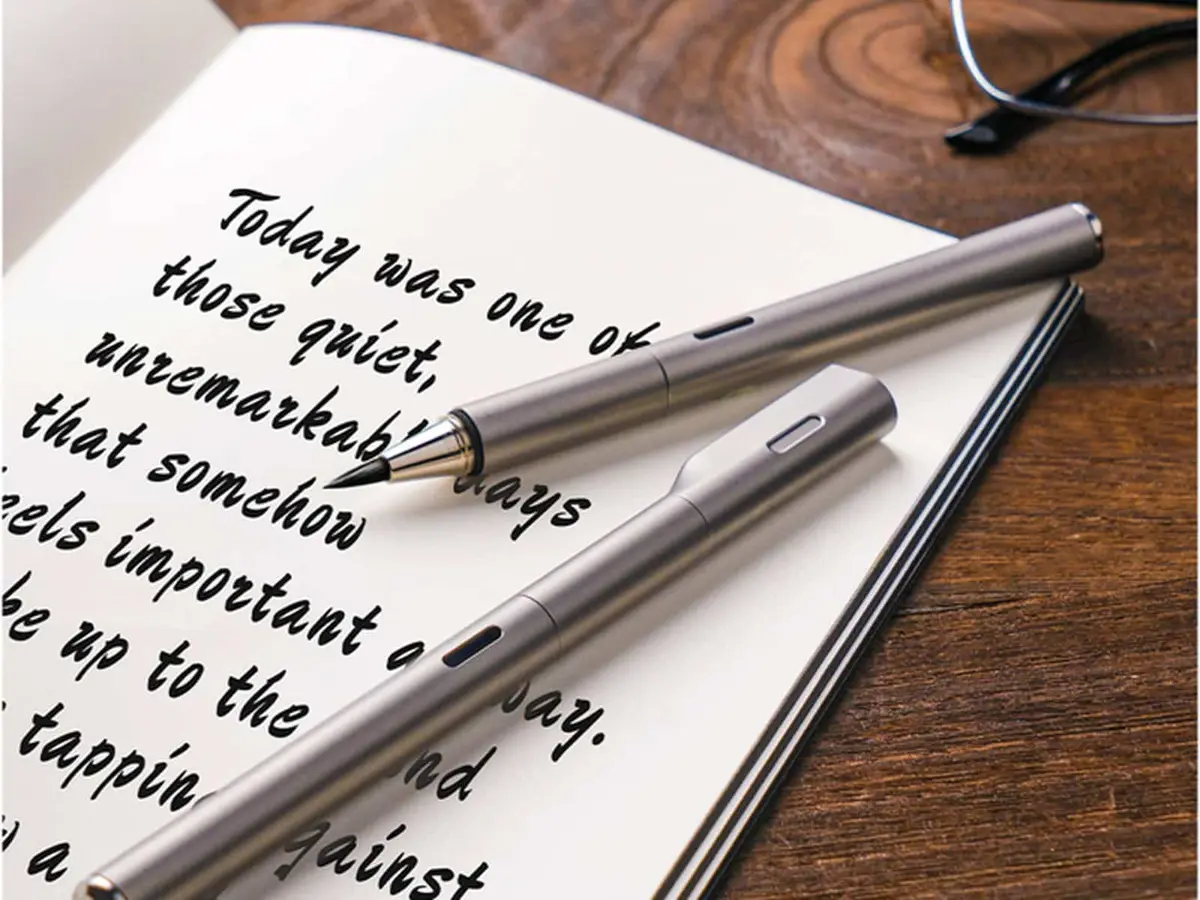 Today was one of
those quiet,
unremarkabl days
that somehow
eels important a day.
be up to the nd
tappin gainst
w a